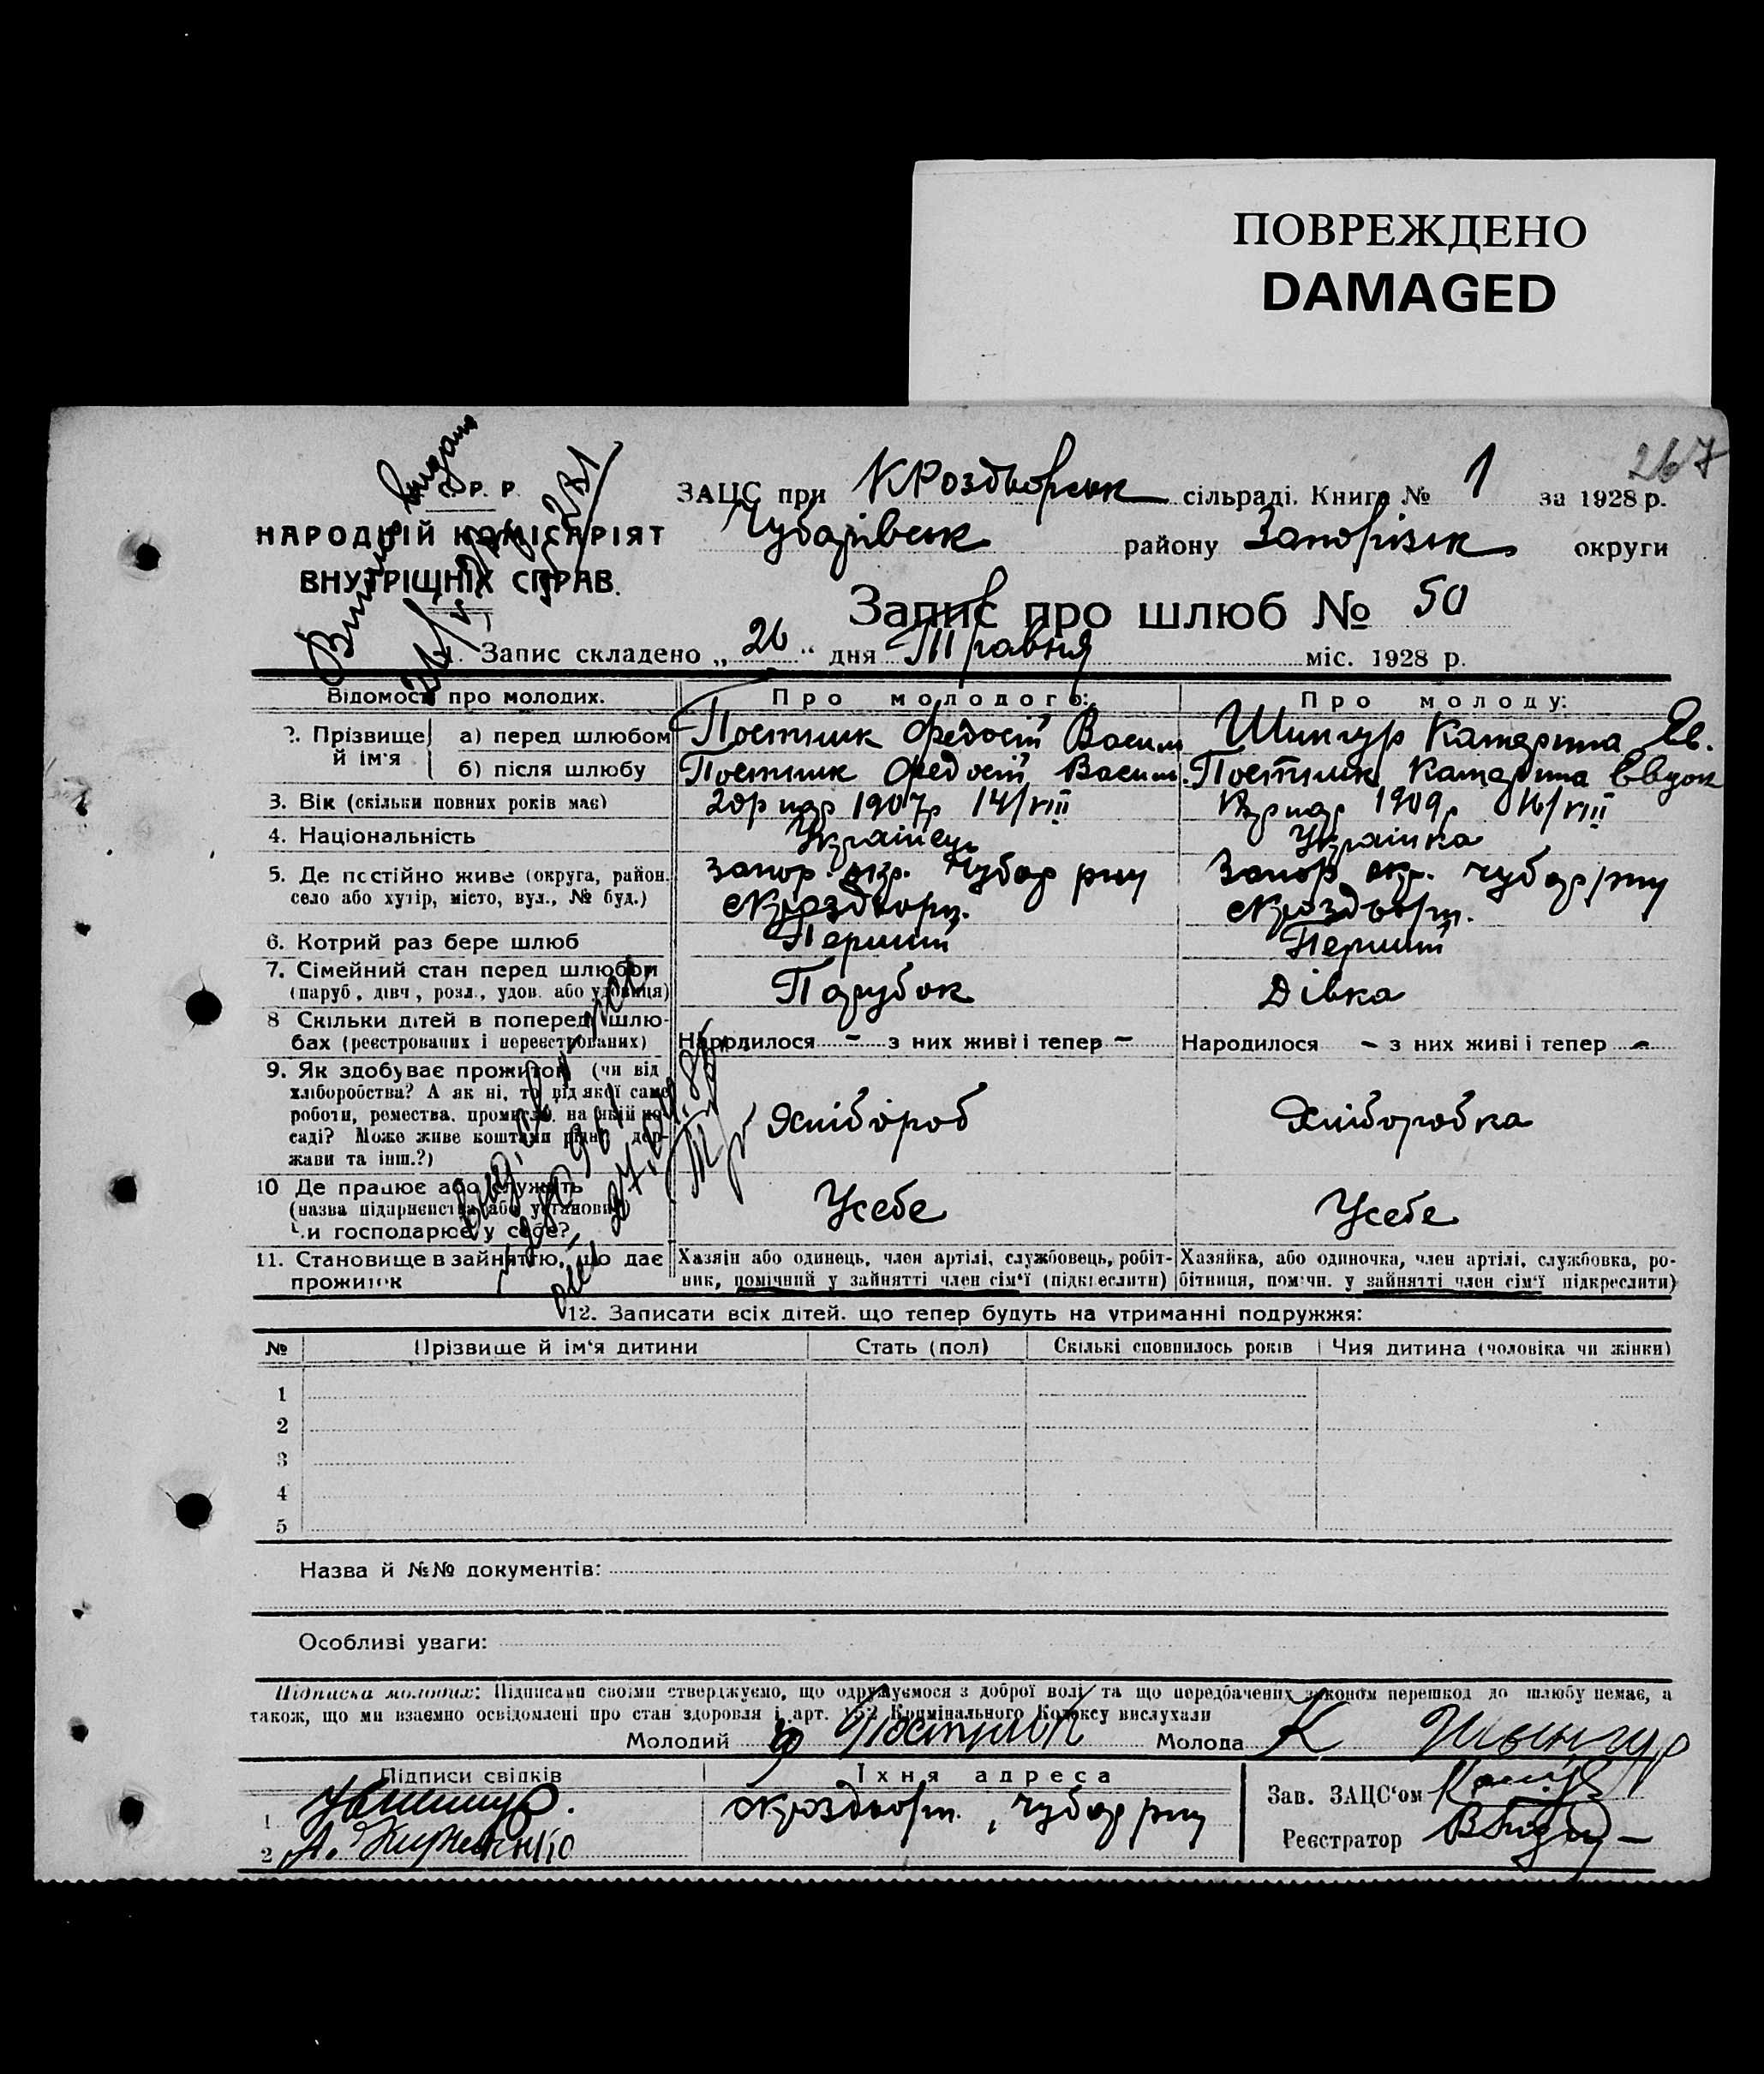 ПОВРЕЖДЕНО
DAMAGED
267
С. Р. Р.
НАРОДНІЙ КОМІСАРІЯТ
ВНУТРІШНІХ СПРАВ.
ЗАЦС при КРоздворськ сільраді. Книга № 1 за 1928 р.
Чубарівськ району Запорізьк округи
Запис про шлюб № 50
1. Запис складено „26“ дня Травня міс. 1928 р.
Відомості про молодих. Про молодого: Про молоду:
2. Прізвище й ім'я а) перед шлюбом Постик Федосій Васил Шингур Катерина Ев.
б) після шлюбу Постик Федосій Васил. Постик Катерина Евдок
3. Вік (скільки повних років має) 20р нар 1907р 14/VIII нар 1909р 16/VIII
4. Національність Українець Українка
5. Де постійно живе (округа, район. село або хутір, місто, вул., № буд.) Запор окр. Чубар рну Запор окр. Чубар рну
6. Котрий раз бере шлюб Перший Перший
7. Сімейний стан перед шлюбом (паруб., дівч., розл., удов. або удовиця) Парубок Дівка
8 Скільки дітей в попередн шлюбах (реєстрованих і нереєстрованих) Народилося – з них живі і тепер – Народилося – з них живі і тепер –
9. Як здобуває прожиток (чи від
хліборобства? А як ні, то від якої саме
роботи, ремества, промисла, на якій по-
саді? Може живе коштами рідні, дер-
жави та інш.?) Хлібороб Хлібробка
10 Де працює або служить
(назва підприємства або установи)
чи господарює у себе? Усебе Усебе
11. Становище в зайняттю, що дає прожиток
Хазяїн або одинець, член артілі, службовець, робіт-
ник, помічний у зайнятті член сім'ї (підкреслити)
Хазяйка, або одиночка, член артілі, службовка, ро-
бітниця, помічн. у зайнятті член сім'ї підкреслити)
12. Записати всіх дітей. що тепер будуть на утриманні подружжя:
№ Прізвище й ім'я дитини Стать (пол) Скількі сповнилось років Чия дитина (чоловіка чи жінки)
1
2
3
4
5
Назва й №№ документів:
Особливі уваги:
Підписка молодих: Підписани своїми стверджуємо, що одружуємося з доброї волі та що передбачених законом перешкод до шлюбу немає, а
також, що ми взаємно освідомлені про стан здоровля і арт. 152 Кримінального Кодексу вислухали
Молодий Ф Постик Молода К Шынгур
Підписи свідків Їхня адреса
Зав. ЗАЦС'ом
1 Чубар рну
Реєстратор
2 А.